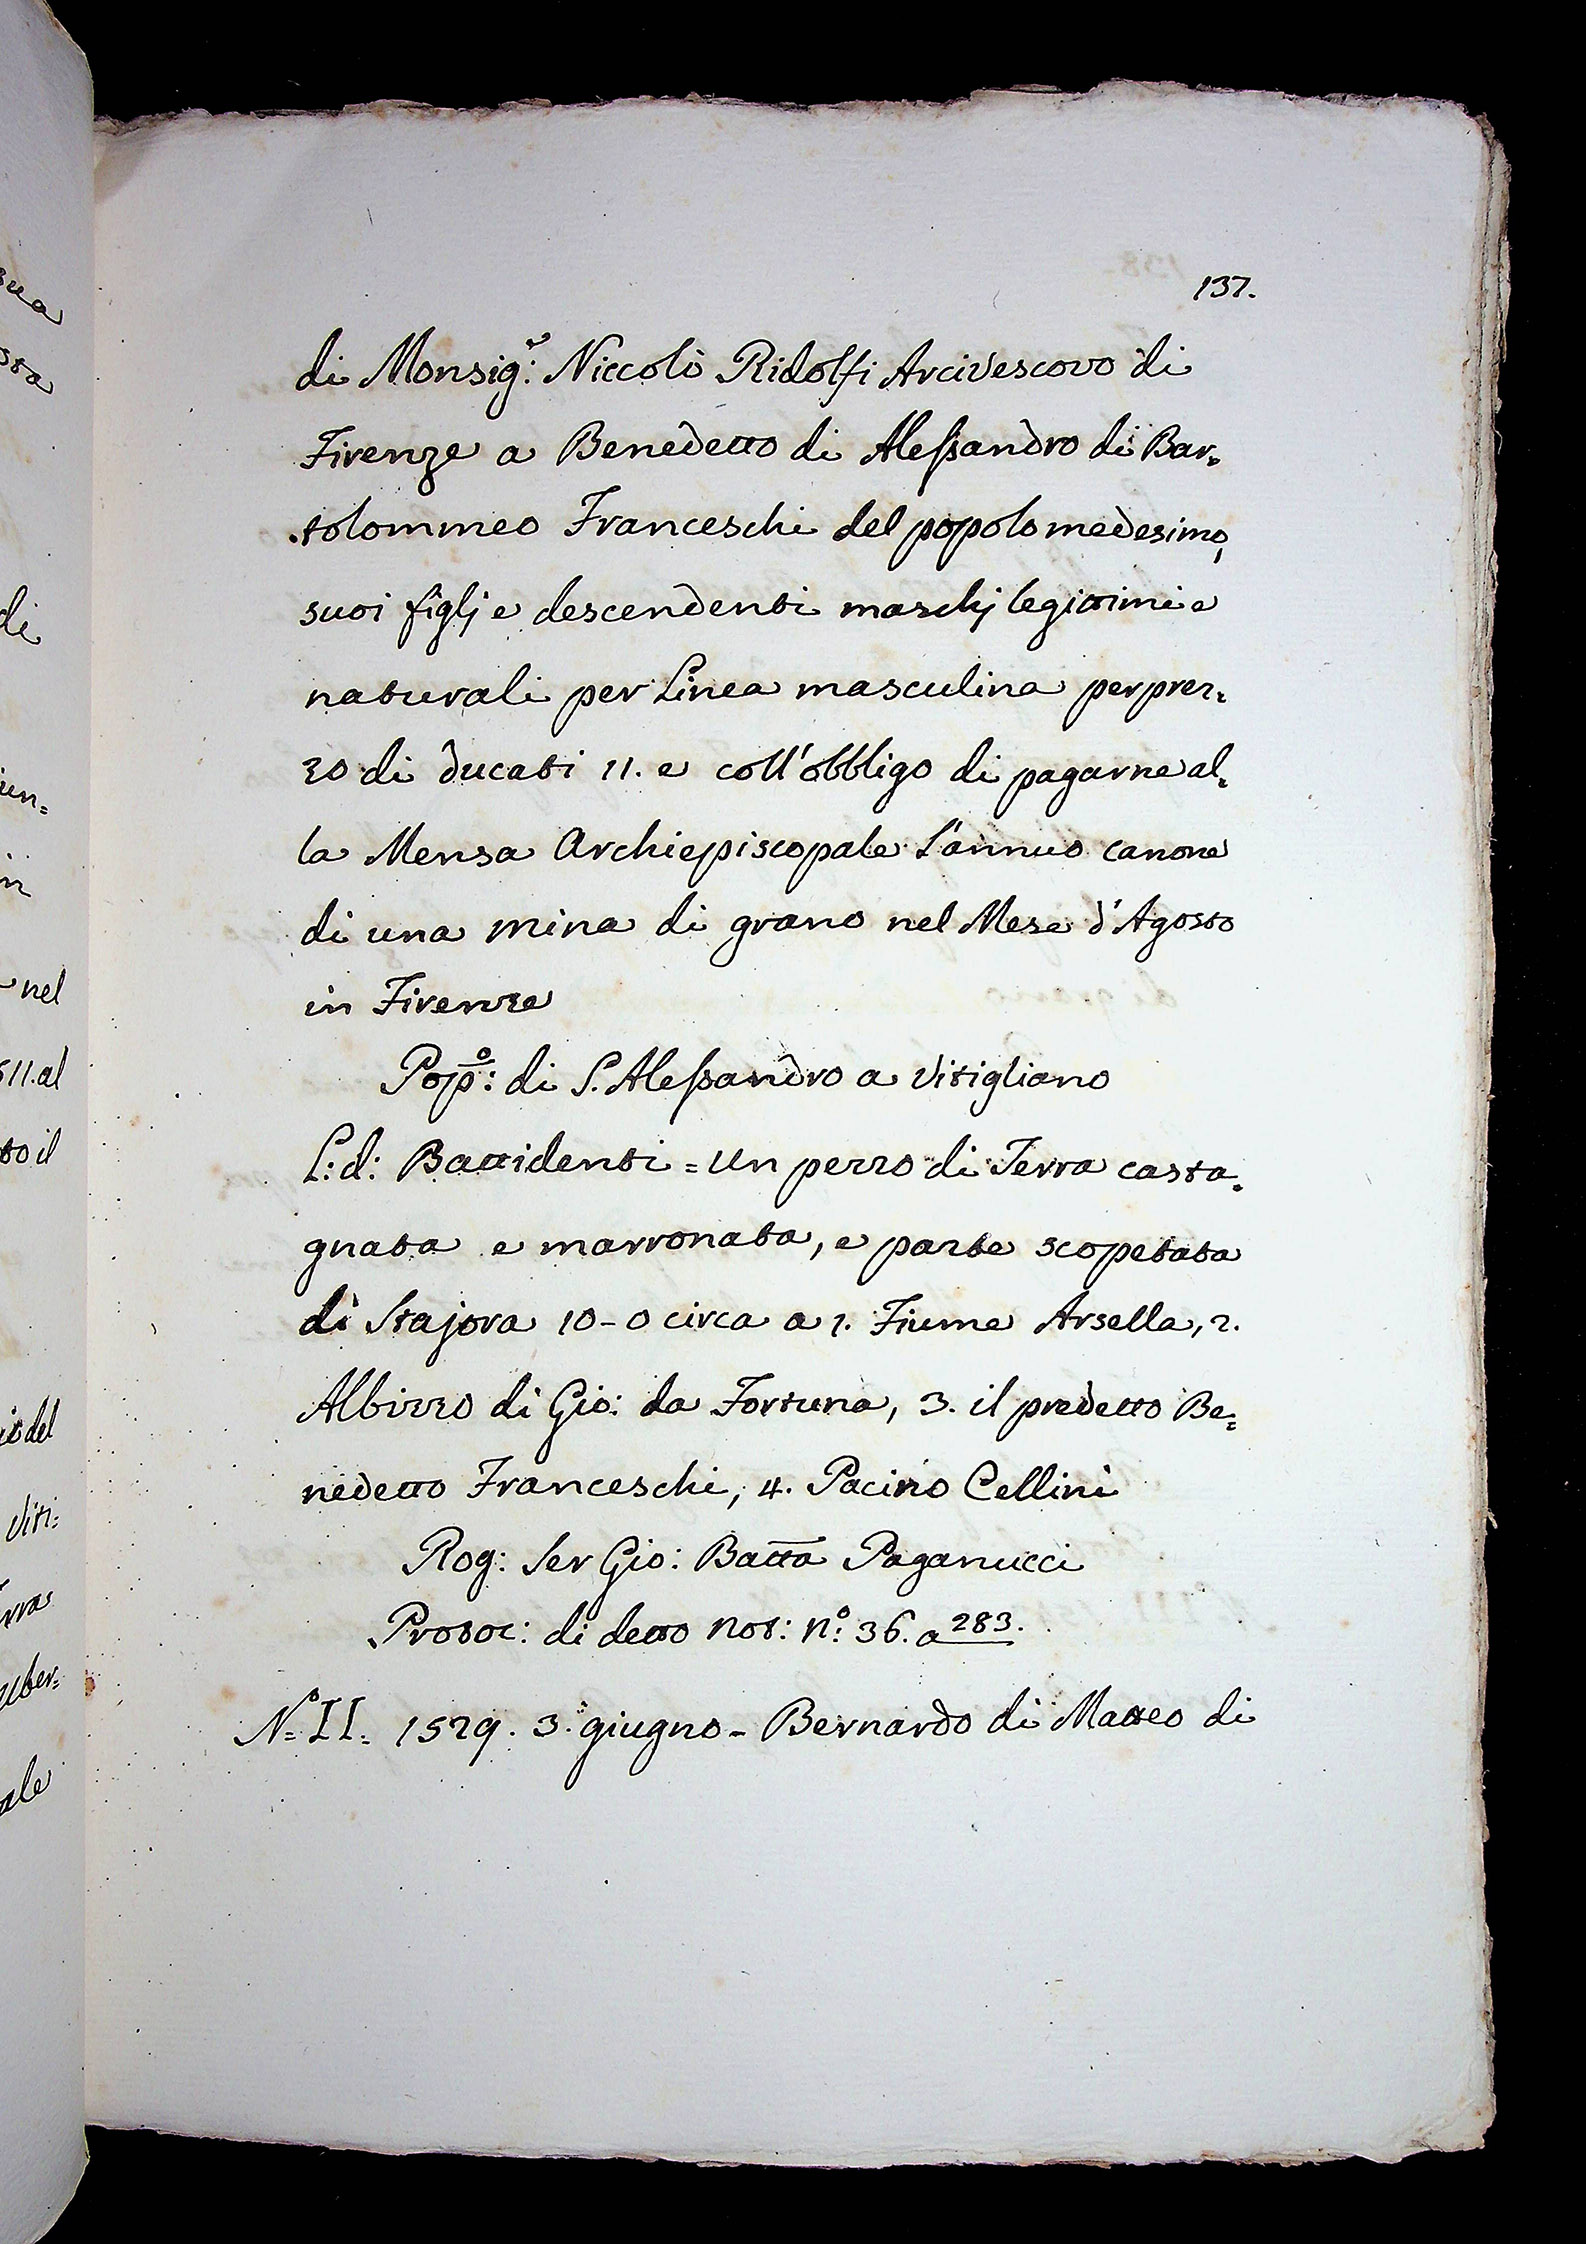 137.
di Monsig.e: Niccolò Ridolfi Arcivescovo di
Firenze a Benedetto di Alessandro di Bar=
tolommeo Franceschi del popolo medesimo,
suoi figlj e descendenti maschj legittimi e
naturali per Linea masculina per prez=
zo di ducati 11. e coll'obbligo di pagarne al=
la Mensa Archiepiscopale l'annuo canone
di una mina di grano nel Mese d'Agosto
in Firenze
Pop.o: di S. Alessandro a Vitigliano
L: d: Battidenti = Un pezzo di Terra casta=
gnata e marronata, e parte scopetata
di Stajora 10-0 circa a 1. Fiume Arsella, 2.
Albizzo di Gio: da Fortuna, 3. il predetto Be=
nedetto Franceschi, 4. Pacino Cellini
Rog: Ser Gio: Batta Paganucci
Protoc: di detto Not: N.o: 36. a 283.
N.o II. 1529. 3. giugno - Bernardo di Matteo di
sua
di
nel
11. al
to il
del
Viti=
ale